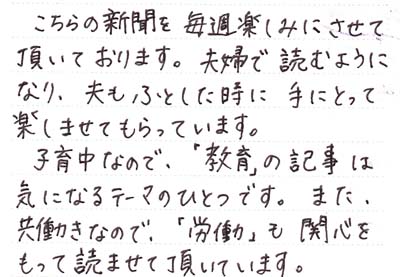 こちらの新聞を毎週楽しみにさせて
頂いております。夫婦で読むように
なり、夫もふとした時に手にとって
楽しませてもらっています。
子育中なので、「教育」の記事は
気になるテーマのひとつです。また、
共働きなので、「労働」も関心を
もって読ませて頂いています。